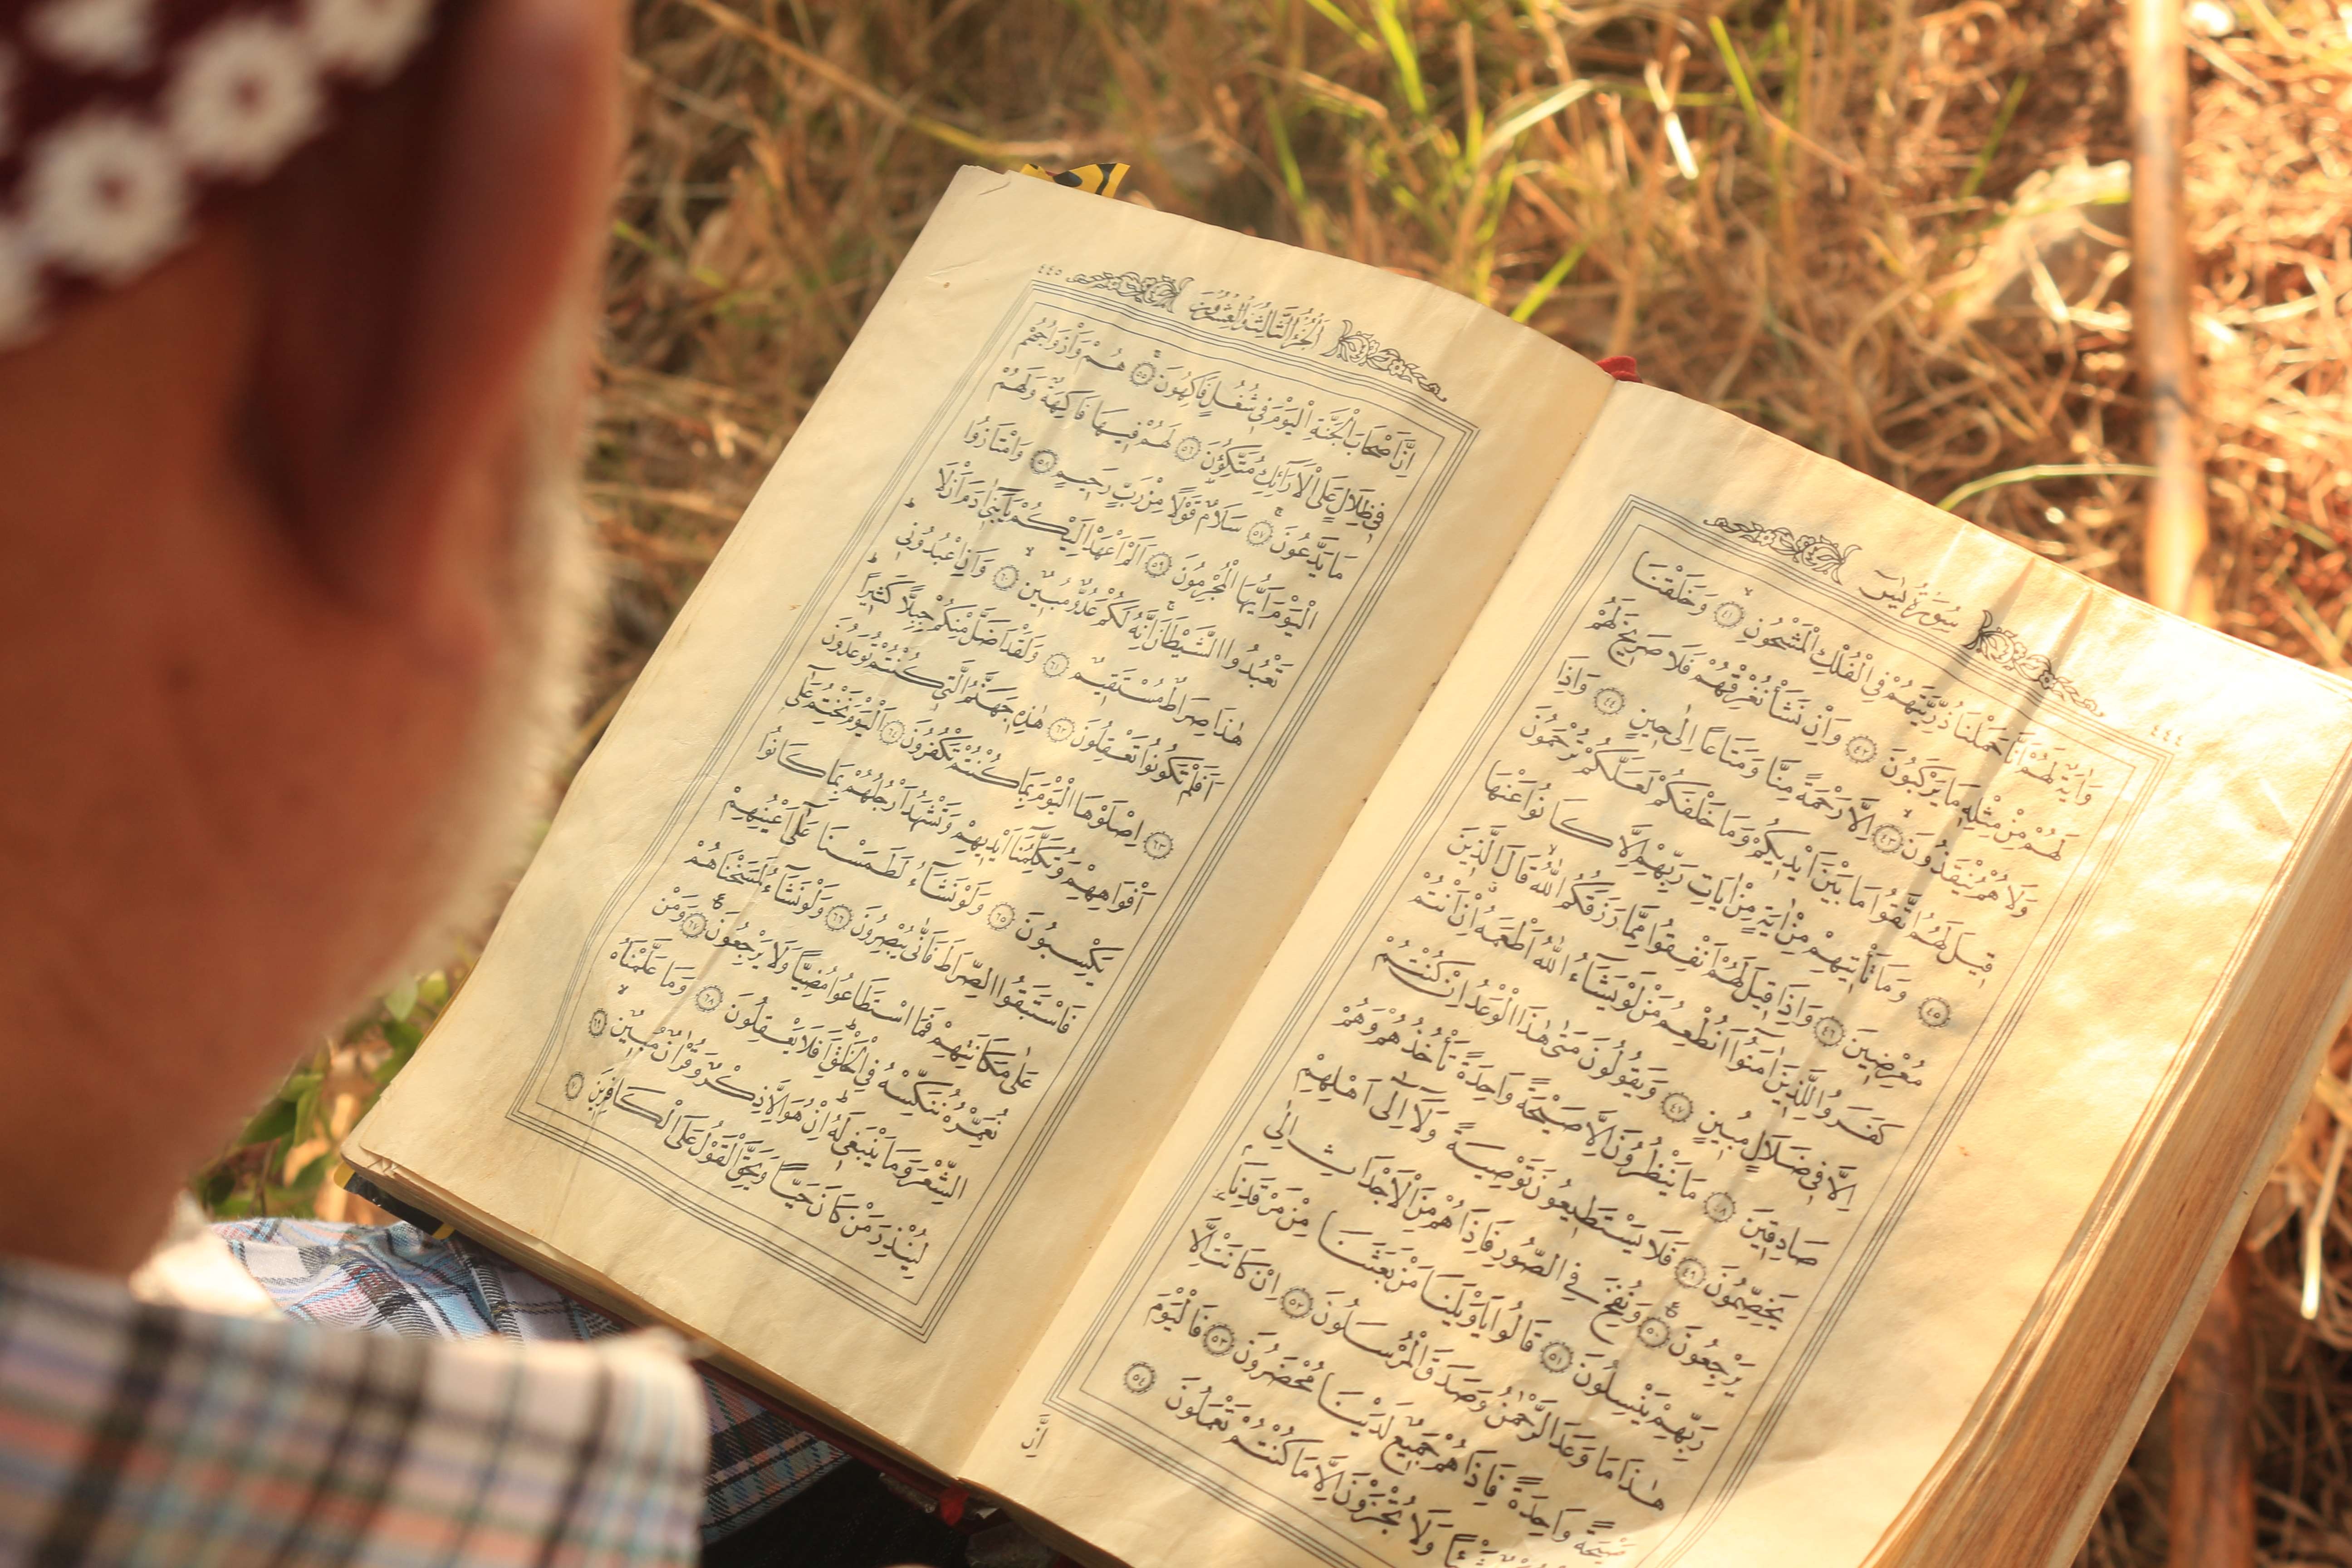 سُورَةُ يٰسٓ ٤٤٤
وَاٰيَةٌ لَهُمْ اَنَّا حَمَلْنَا ذُرِّيَّتَهُمْ فِي الْفُلْكِ الْمَشْحُونِ ٤١ وَخَلَقْنَا
لَهُمْ مِنْ مِثْلِهِ مَا يَرْكَبُونَ ٤٢ وَاِنْ نَشَأْ نُغْرِقْهُمْ فَلَا صَرِيخَ لَهُمْ
وَلَا هُمْ يُنْقَذُونَ ٤٣ اِلَّا رَحْمَةً مِنَّا وَمَتَاعًا اِلٰى حِينٍ ٤٤ وَاِذَا
قِيلَ لَهُمُ اتَّقُوا مَا بَيْنَ اَيْدِيكُمْ وَمَا خَلْفَكُمْ لَعَلَّكُمْ تُرْحَمُونَ
٤٥ وَمَا تَأْتِيهِمْ مِنْ اٰيَةٍ مِنْ اٰيَاتِ رَبِّهِمْ اِلَّا كَانُوا عَنْهَا
مُعْرِضِينَ ٤٦ وَاِذَا قِيلَ لَهُمْ اَنْفِقُوا مِمَّا رَزَقَكُمُ اللّٰهُ قَالَ الَّذِينَ
كَفَرُوا لِلَّذِينَ اٰمَنُوا اَنُطْعِمُ مَنْ لَوْ يَشَآءُ اللّٰهُ اَطْعَمَهُ اِنْ اَنْتُمْ
اِلَّا فِي ضَلَالٍ مُبِينٍ ٤٧ وَيَقُولُونَ مَتٰى هٰذَا الْوَعْدُ اِنْ كُنْتُمْ
صَادِقِينَ ٤٨ مَا يَنْظُرُونَ اِلَّا صَيْحَةً وَاحِدَةً تَأْخُذُهُمْ وَهُمْ
يَخِصِّمُونَ ٤٩ فَلَا يَسْتَطِيعُونَ تَوْصِيَةً وَلَآ اِلٰٓى اَهْلِهِمْ
يَرْجِعُونَ ٥٠ وَنُفِخَ فِي الصُّورِ فَاِذَا هُمْ مِنَ الْاَجْدَاثِ اِلٰى
رَبِّهِمْ يَنْسِلُونَ ٥١ قَالُوا يَاوَيْلَنَا مَنْ بَعَثَنَا مِنْ مَرْقَدِنَا
هٰذَا مَا وَعَدَ الرَّحْمٰنُ وَصَدَقَ الْمُرْسَلُونَ ٥٢ اِنْ كَانَتْ اِلَّا
صَيْحَةً وَاحِدَةً فَاِذَا هُمْ جَمِيعٌ لَدَيْنَا مُحْضَرُونَ ٥٣ فَالْيَوْمَ
شَيْئًا وَلَا تُجْزَوْنَ اِلَّا مَا كُنْتُمْ تَعْمَلُونَ ٥٤
اِنَّ
اَلْجُزْءُ الثَّالِثُ وَالْعِشْرُونَ ٤٤٥
اِنَّ اَصْحَابَ الْجَنَّةِ الْيَوْمَ فِي شُغُلٍ فَاكِهُونَ ٥٥ هُمْ وَاَزْوَاجُهُمْ
فِي ظِلَالٍ عَلَى الْاَرَآئِكِ مُتَّكِؤُنَ ٥٦ لَهُمْ فِيهَا فَاكِهَةٌ وَلَهُمْ
مَا يَدَّعُونَ ٥٧ سَلَامٌ قَوْلًا مِنْ رَبٍّ رَحِيمٍ ٥٨ وَامْتَازُوا
الْيَوْمَ اَيُّهَا الْمُجْرِمُونَ ٥٩ اَلَمْ اَعْهَدْ اِلَيْكُمْ يَابَنِيٓ اٰدَمَ اَنْ لَا
تَعْبُدُوا الشَّيْطَانَ اِنَّهُ لَكُمْ عَدُوٌّ مُبِينٌ ٦٠ وَاَنِ اعْبُدُونِي
هٰذَا صِرَاطٌ مُسْتَقِيمٌ ٦١ وَلَقَدْ اَضَلَّ مِنْكُمْ جِبِلًّا كَثِيرًا
اَفَلَمْ تَكُونُوا تَعْقِلُونَ ٦٢ هٰذِهِ جَهَنَّمُ الَّتِي كُنْتُمْ تُوعَدُونَ
٦٣ اِصْلَوْهَا الْيَوْمَ بِمَا كُنْتُمْ تَكْفُرُونَ ٦٤ اَلْيَوْمَ نَخْتِمُ عَلٰٓى
اَفْوَاهِهِمْ وَتُكَلِّمُنَآ اَيْدِيهِمْ وَتَشْهَدُ اَرْجُلُهُمْ بِمَا كَانُوا
يَكْسِبُونَ ٦٥ وَلَوْ نَشَآءُ لَطَمَسْنَا عَلٰٓى اَعْيُنِهِمْ
فَاسْتَبَقُوا الصِّرَاطَ فَاَنّٰى يُبْصِرُونَ ٦٦ وَلَوْ نَشَآءُ لَمَسَخْنَاهُمْ
عَلٰى مَكَانَتِهِمْ فَمَا اسْتَطَاعُوا مُضِيًّا وَلَا يَرْجِعُونَ ٦٧ وَمَنْ
نُعَمِّرْهُ نُنَكِّسْهُ فِي الْخَلْقِ اَفَلَا يَعْقِلُونَ ٦٨ وَمَا عَلَّمْنَاهُ
الشِّعْرَ وَمَا يَنْبَغِي لَهُ اِنْ هُوَ اِلَّا ذِكْرٌ وَقُرْاٰنٌ مُبِينٌ ٦٩
لِيُنْذِرَ مَنْ كَانَ حَيًّا وَيَحِقَّ الْقَوْلُ عَلَى الْكَافِرِينَ ٧٠